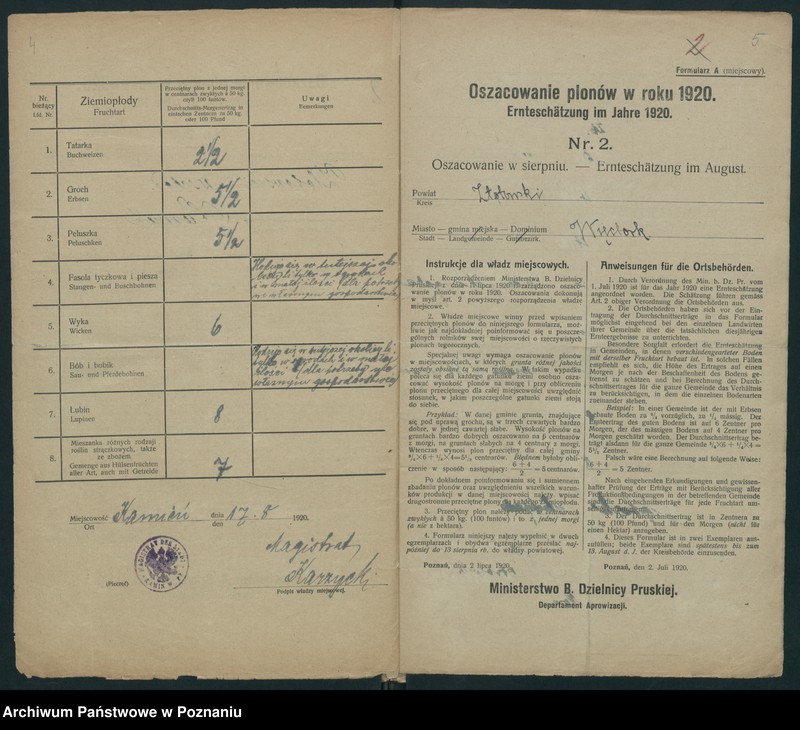 4
Nr. bieżący
Lfd. Nr.
Ziemiopłody
Fruchtart
Przeciętny plon z jednej morgi
w centnarach zwykłych à 50 kg
czyli 100 funtów.
Durchschnitts-Morgenertrag in
einfachen Zentnern zu 50 kg
oder 100 Pfund
Uwagi
Bemerkungen
1.
Tatarka
Buchweizen
2 1/2
2.
Groch
Erbsen
5 1/2
3.
Peluszka
Peluschken
5 1/2
4.
Fasola tyczkowa i piesza
Stangen- und Buschbohnen
5.
Wyka
Wicken
6
6.
Bób i bobik
Sau- und Pferdebohnen
7.
Łubin
Lupinen
8
8.
Mieszanka różnych rodzaji
roślin strączkowych, także
ze zbożem.
Gemenge aus Hülsenfrüchten
aller Art, auch mit Getreide
7
Miejscowość Kamień dnia 17. 8 1920.
Ort den
Magistrat
(Pieczęć)
Podpis władzy miejscowej.
2
5
Formularz A (miejscowy).
Oszacowanie plonów w roku 1920.
Ernteschätzung im Jahre 1920.
Nr. 2.
Oszacowanie w sierpniu. — Ernteschätzung im August.
Powiat
Kreis
Złotowski
Miasto — gmina miejska — Dominium
Stadt — Landgemeinde — Gutsbezirk.
Więcbork
Instrukcje dla władz miejscowych.
1. Rozporządzeniem Ministerstwa B. Dzielnicy
Pruskiej z dnia 1 lipca 1920 zarządzono oszaco-
wanie plonów w roku 1920. Oszacowania dokonują
w myśl art. 2 powyższego rozporządzenia władze
miejscowe.
2. Władze miejscowe winny przed wpisaniem
przeciętnych plonów do niniejszego formularza, możli-
wie jak najdokładniej poinformować się u poszcze-
gólnych rolników swej miejscowości o rzeczywistych
plonach tegorocznych.
Specjalnej uwagi wymaga oszacowanie plonów
w miejscowościach, w których grunta różnej jakości
zostały obsiane tą samą rośliną. W takim wypadku
poleca się dla każdego gatunku ziemi osobno oszaco-
wać wysokość plonów na morgę i przy obliczeniu
plonu przeciętnego dla całej miejscowości uwzględnić
stosunek, w jakim poszczególne gatunki ziemi stoją
do siebie.
Przykład: W danej gminie grunta, znajdujące
się pod uprawą grochu, są w trzech czwartych bardzo
dobre, w jednej czwartej słabe. Wysokość plonów na
gruntach bardzo dobrych oszacowano na 6 centnarów
z morgi, na gruntach słabych na 4 centnary z morgi.
Wtenczas wynosi plon przeciętny dla całej gminy
3/4×6 + 1/4×4=5 1/2 centnarów. Błędnem byłoby obli-
czenie w sposób następujący: 6+4/2 = 5 centnarów.
Po dokładnem poinformowaniu się i sumiennem
zbadaniu plonów oraz uwzględnieniu wszelkich warun-
ków produkcji w danej miejscowości należy wpisać
drugostronnie przeciętne plony dla każdego ziemiopłodu.
3. Przeciętny plon należy podać w centnarach
zwykłych à 50 kg. (100 funtów) i to z jednej morgi
(a nie z hektara).
4. Formularz niniejszy należy wypełnić w dwuch
egzemplarzach i obydwa egzemplarze przesłać naj-
później do 13 sierpnia rb. do władzy powiatowej.
Poznań, dnia 2 lipca 1920.
Anweisungen für die Ortsbehörden.
1. Durch Verordnung des Min. b. Dz. Pr. vom
1. Juli 1920 ist für das Jahr 1920 eine Ernteschätzung
angeordnet worden. Die Schätzung führen gemäss
Art. 2 obiger Verordnung die Ortsbehörden aus.
2. Die Ortsbehörden haben sich vor der Ein-
tragung der Durchschnittserträge in das Formular
möglichst eingehend bei den einzelnen Landwirten
ihrer Gemeinde über die tatsächlichen diesjährigen
Ernteergebnisse zu unterrichten.
Besonders Sorgfalt erfordert die Ernteschätzung
in Gemeinden, in denen verschiedengearteter Boden
mit derselben Fruchtart bebaut ist. In solchen Fällen
empfiehlt es sich, die Höhe des Ertrages auf einen
Morgen je nach der Beschaffenheit des Bodens ge-
trennt zu schätzen und bei Berechnung des Durch-
schnittsertrages für die ganze Gemeinde das Verhältnis
zu berücksichtigen, in dem die einzelnen Bodenarten
zueinander stehen.
Beispiel: In einer Gemeinde ist der mit Erbsen
bebaute Boden zu 3/4 vorzüglich, zu 1/4 mässig. Der
Ernteertrag des guten Bodens ist auf 6 Zentner pro
Morgen, der des mässigen Bodens auf 4 Zentner pro
Morgen geschätzt worden. Der Durchschnittsertrag be-
trägt alsdann für die ganze Gemeinde 3/4×6 + 1/4×4 =
5 1/2 Zentner.
Falsch wäre eine Berechnung auf folgende Weise:
6+4/2 = 5 Zentner.
Nach eingehenden Erkundigungen und gewissen-
hafter Prüfung der Erträge mit Berücksichtigung aller
Produktionsbedingungen in der betreffenden Gemeinde
sind die Durchschnittserträge für jede Fruchtart um-
seitig
3. Der Durchschnittsertrag ist in Zentnern zu
50 kg (100 Pfund) und für den Morgen (nicht für
einen Hektar) anzugeben.
4. Dieses Formular ist in zwei Exemplaren aus-
zufüllen; beide Exemplare sind spätestens bis zum
13. August d. J. der Kreisbehörde einzusenden.
Poznań, den 2. Juli 1920.
Ministerstwo B. Dzielnicy Pruskiej.
Departament Aprowizacji.
Archiwum Państwowe w Poznaniu